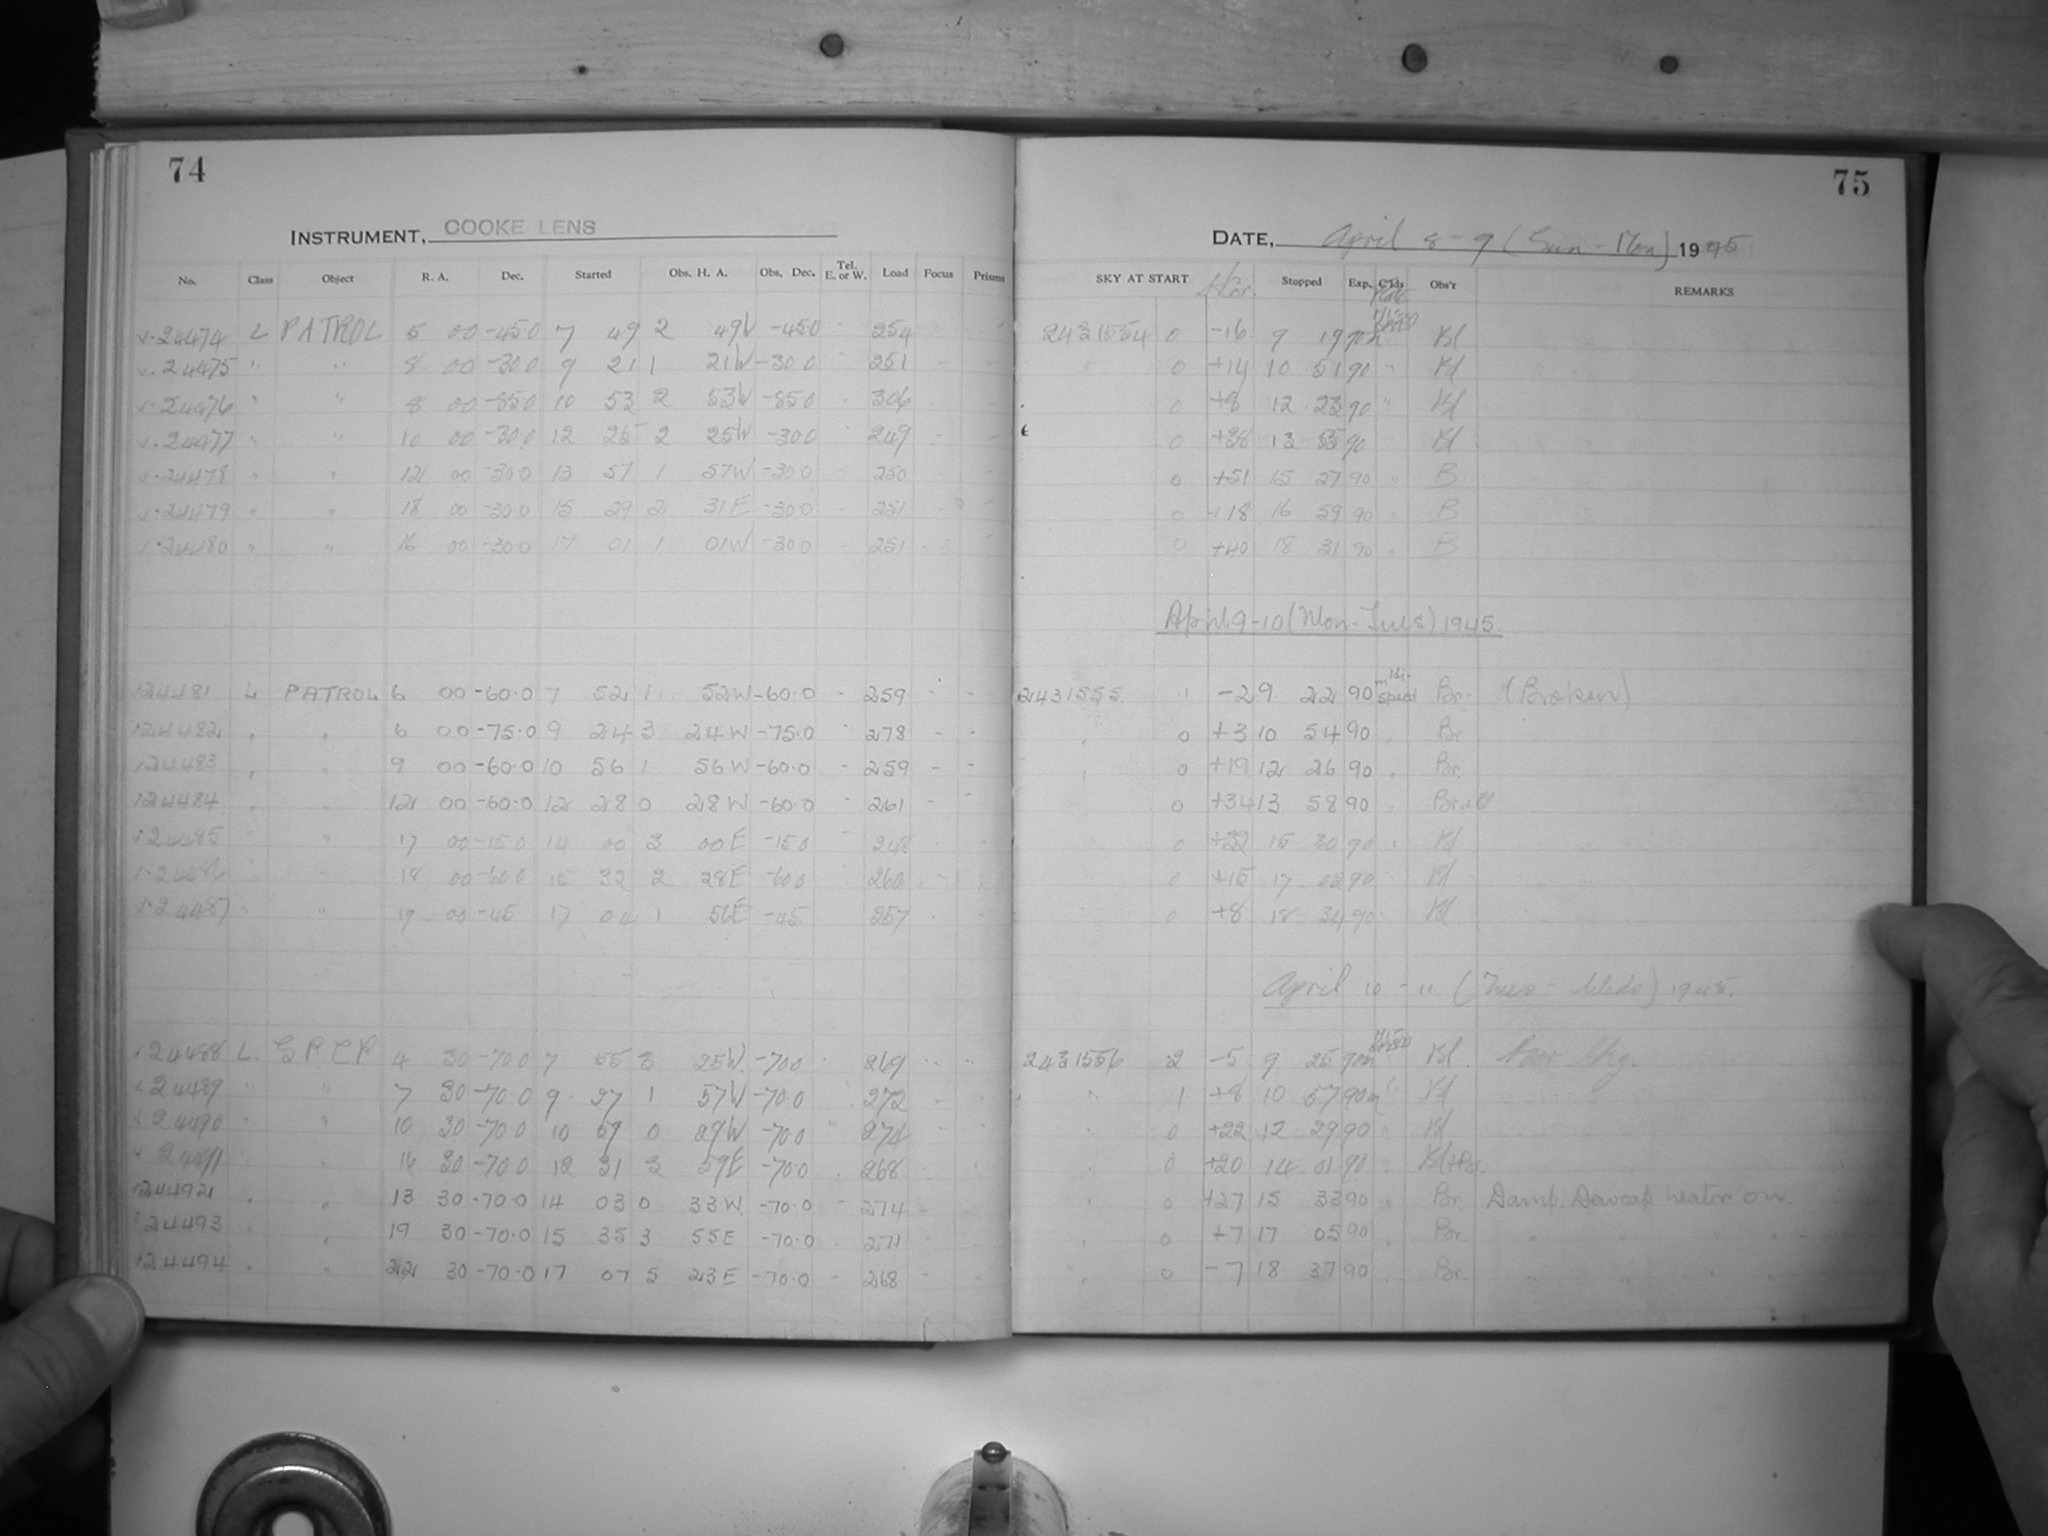 74
INSTRUMENT, COOKE LENS
No. Class Object R. A. Dec. Started Obs. H. A. Obs. Dec. Tel. E. or W. Load Focus Prisms
24474 L PATROL 5 00 -45.0 7 49 2 49W -45.0 - 254
24475 " " 8 00 -30.0 9 21 1 21W -30.0 - 251 - -
24476 " " 8 00 -85.0 10 53 2 53W -85.0 - 306
24477 " " 10 00 -30.0 12 25 2 25W -30.0 249 - -
24478 " " 12 00 -30.0 13 57 1 57W -30.0 250
24479 " " 18 00 -30.0 15 29 2 31E -30.0 251 - -
24480 " " 16 00 -30.0 17 01 1 01W -30.0 - 251
24481 L PATROL 6 00 -60.0 7 52 1 52W -60.0 - 259 - -
24482 " " 6 00 -75.0 9 24 3 24W -75.0 - 278 - -
24483 " " 9 00 -60.0 10 56 1 56W -60.0 - 259 - -
24484 " " 12 00 -60.0 12 28 0 28W -60.0 - 261 - -
24485 " " 17 00 -15.0 14 00 3 00E -15.0 - 248
24486 " 18 00 -60.0 15 32 2 28E -60.0 260
24487 " " 19 00 -45 17 04 1 56E -45 257
24488 L. S.P.C.P. 4 30 -70.0 7 55 3 25W. -70.0 269
24489 " " 7 30 -70.0 9 27 1 57W -70.0 272
24490 " " 10 30 -70.0 10 59 0 29W -70.0 274
24491 " 16 30 -70.0 12 31 3 59E -70.0 268
24492 " " 13 30 -70.0 14 03 0 33W. -70.0 - 274 -
24493 " " 19 30 -70.0 15 35 3 55E -70.0 - 271
24494 " " 22 30 -70.0 17 07 5 23E -70.0 - 268 -
75
DATE, April 8-9 (Sun - Mon) 1945
SKY AT START HCor. Stopped Exp. Plate Obs'r REMARKS
2431554 0 -16 9 19 90m Hi-Speed Bl
0 +14 10 51 90 " Bl
0 +8 12 23 90 " Bl
0 +38 13 55 90 " Bl
0 +51 15 27 90 " B
0 +18 16 59 90 " B
0 +40 18 31 90 " B
April 9-10 (Mon-Tues) 1945.
2431555. 1 -2 9 22 90m Hi-speed Br. (Broken)
" 0 +3 10 54 90 " Br
" 0 +19 12 26 90 " Br.
0 +34 13 58 90 Br
0 +22 15 30 90 " Bl
0 +15 17 02 90 Bl
0 +8 18 34 90 Bl
April 10-11 (Tues - Weds) 1945.
2431556 2 -5 9 25 90m Hi-Speed Bl. Poor Sky.
" 1 +8 10 57 90m " Bl
" 0 +22 12 29 90 " Bl
" 0 +20 14 01 90 " Bl+Br.
" 0 +27 15 33 90 " Br. Damp. Dewcap heater on.
" 0 +7 17 05 90 Br. " " " "
" 0 -7 18 37 90 " Br. " " " "